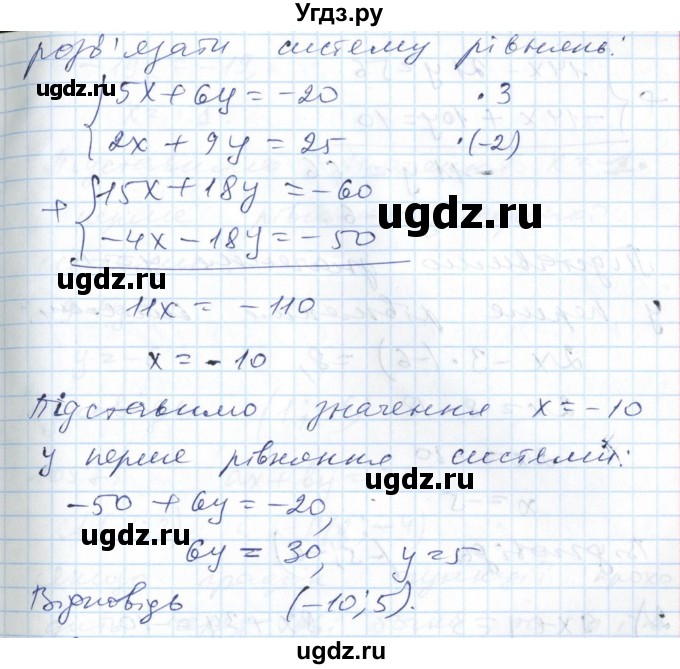 Угдз.ру
розв'язати систему рівнянь:
{5x + 6y = -20 · 3
{2x + 9y = 25 · (-2)
+ {15x + 18y = -60
{-4x - 18y = -50
11x = -110
x = -10
Підставимо значення x = -10
у перше рівняння системи:
-50 + 6y = -20,
6y = 30, y = 5
Відповідь (-10; 5).
ugdz.ru
ugdz.ru
ugdz.ru
ugdz.ru
ugdz.ru
ugdz.ru
ugdz.ru
ugdz.ru
ugdz.ru
ugdz.ru